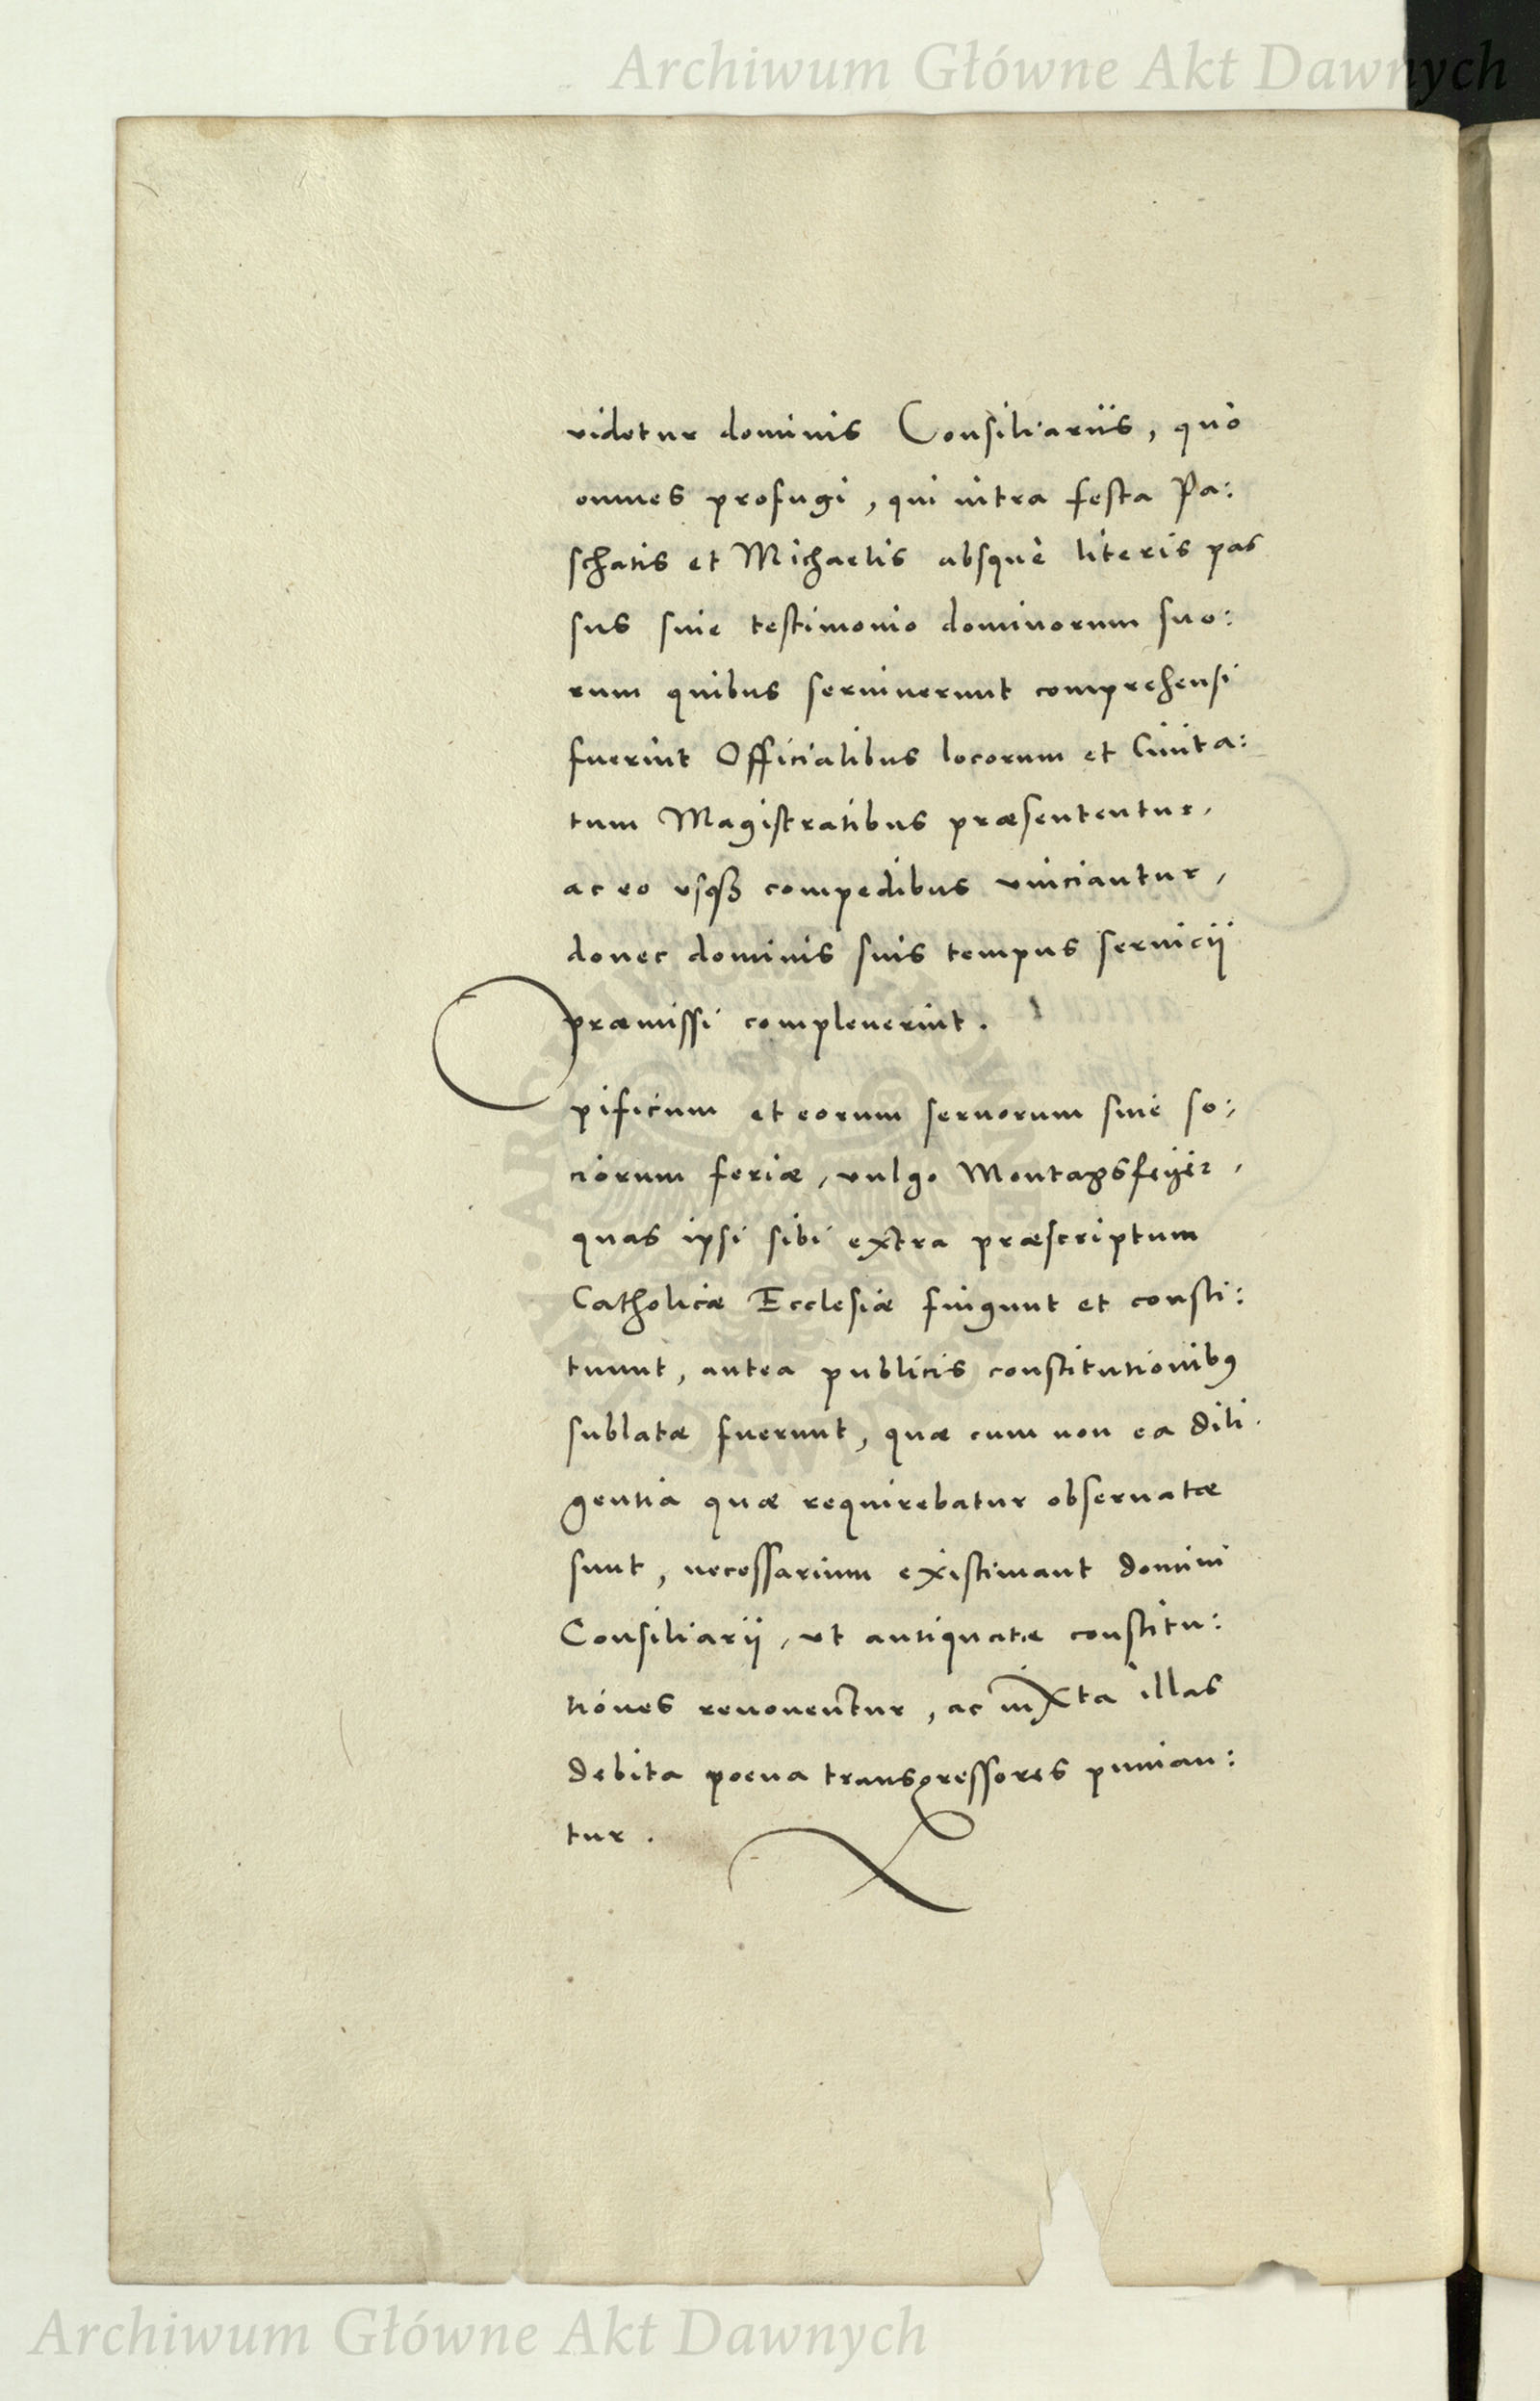 Archiwum Główne Akt Dawnych
videtur dominis Consiliariis, quo
omnes profugi, qui intra festa Pa:
schatis et Michaelis absque literis pas
sus siue testimonio dominorum suo:
rum quibus seruiuerunt comprehensi
fuerint Officialibus locorum et Ciuita:
tum Magistratibus præsententur,
ac eo usqꝫ compedibus vinciantur,
donec dominis suis tempus seruicij
præmissi compleuerint.
Opificum et eorum seruorum siue so:
ciorum feriæ, vulgo Montagsfeyer,
quas ipsi sibi extra præscriptum
Catholicæ Ecclesiæ fingunt et consti:
tuunt, antea publicis constitutionibꝰ
sublatæ fuerunt, quæ cum non ea dili
gentia quæ requirebatur obseruatæ
sunt, necessarium existimant domini
Consiliarij, vt antiquatæ constitu:
tiones renouentur, ac iuxta illas
debita poena transgressores punian:
tur.
Archiwum Główne Akt Dawnych